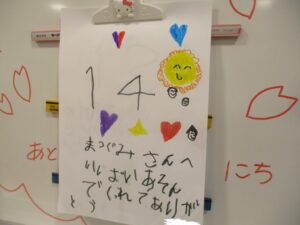 14
あと にち
まつぐみ さんへ
あそん
でくれてありが
とう